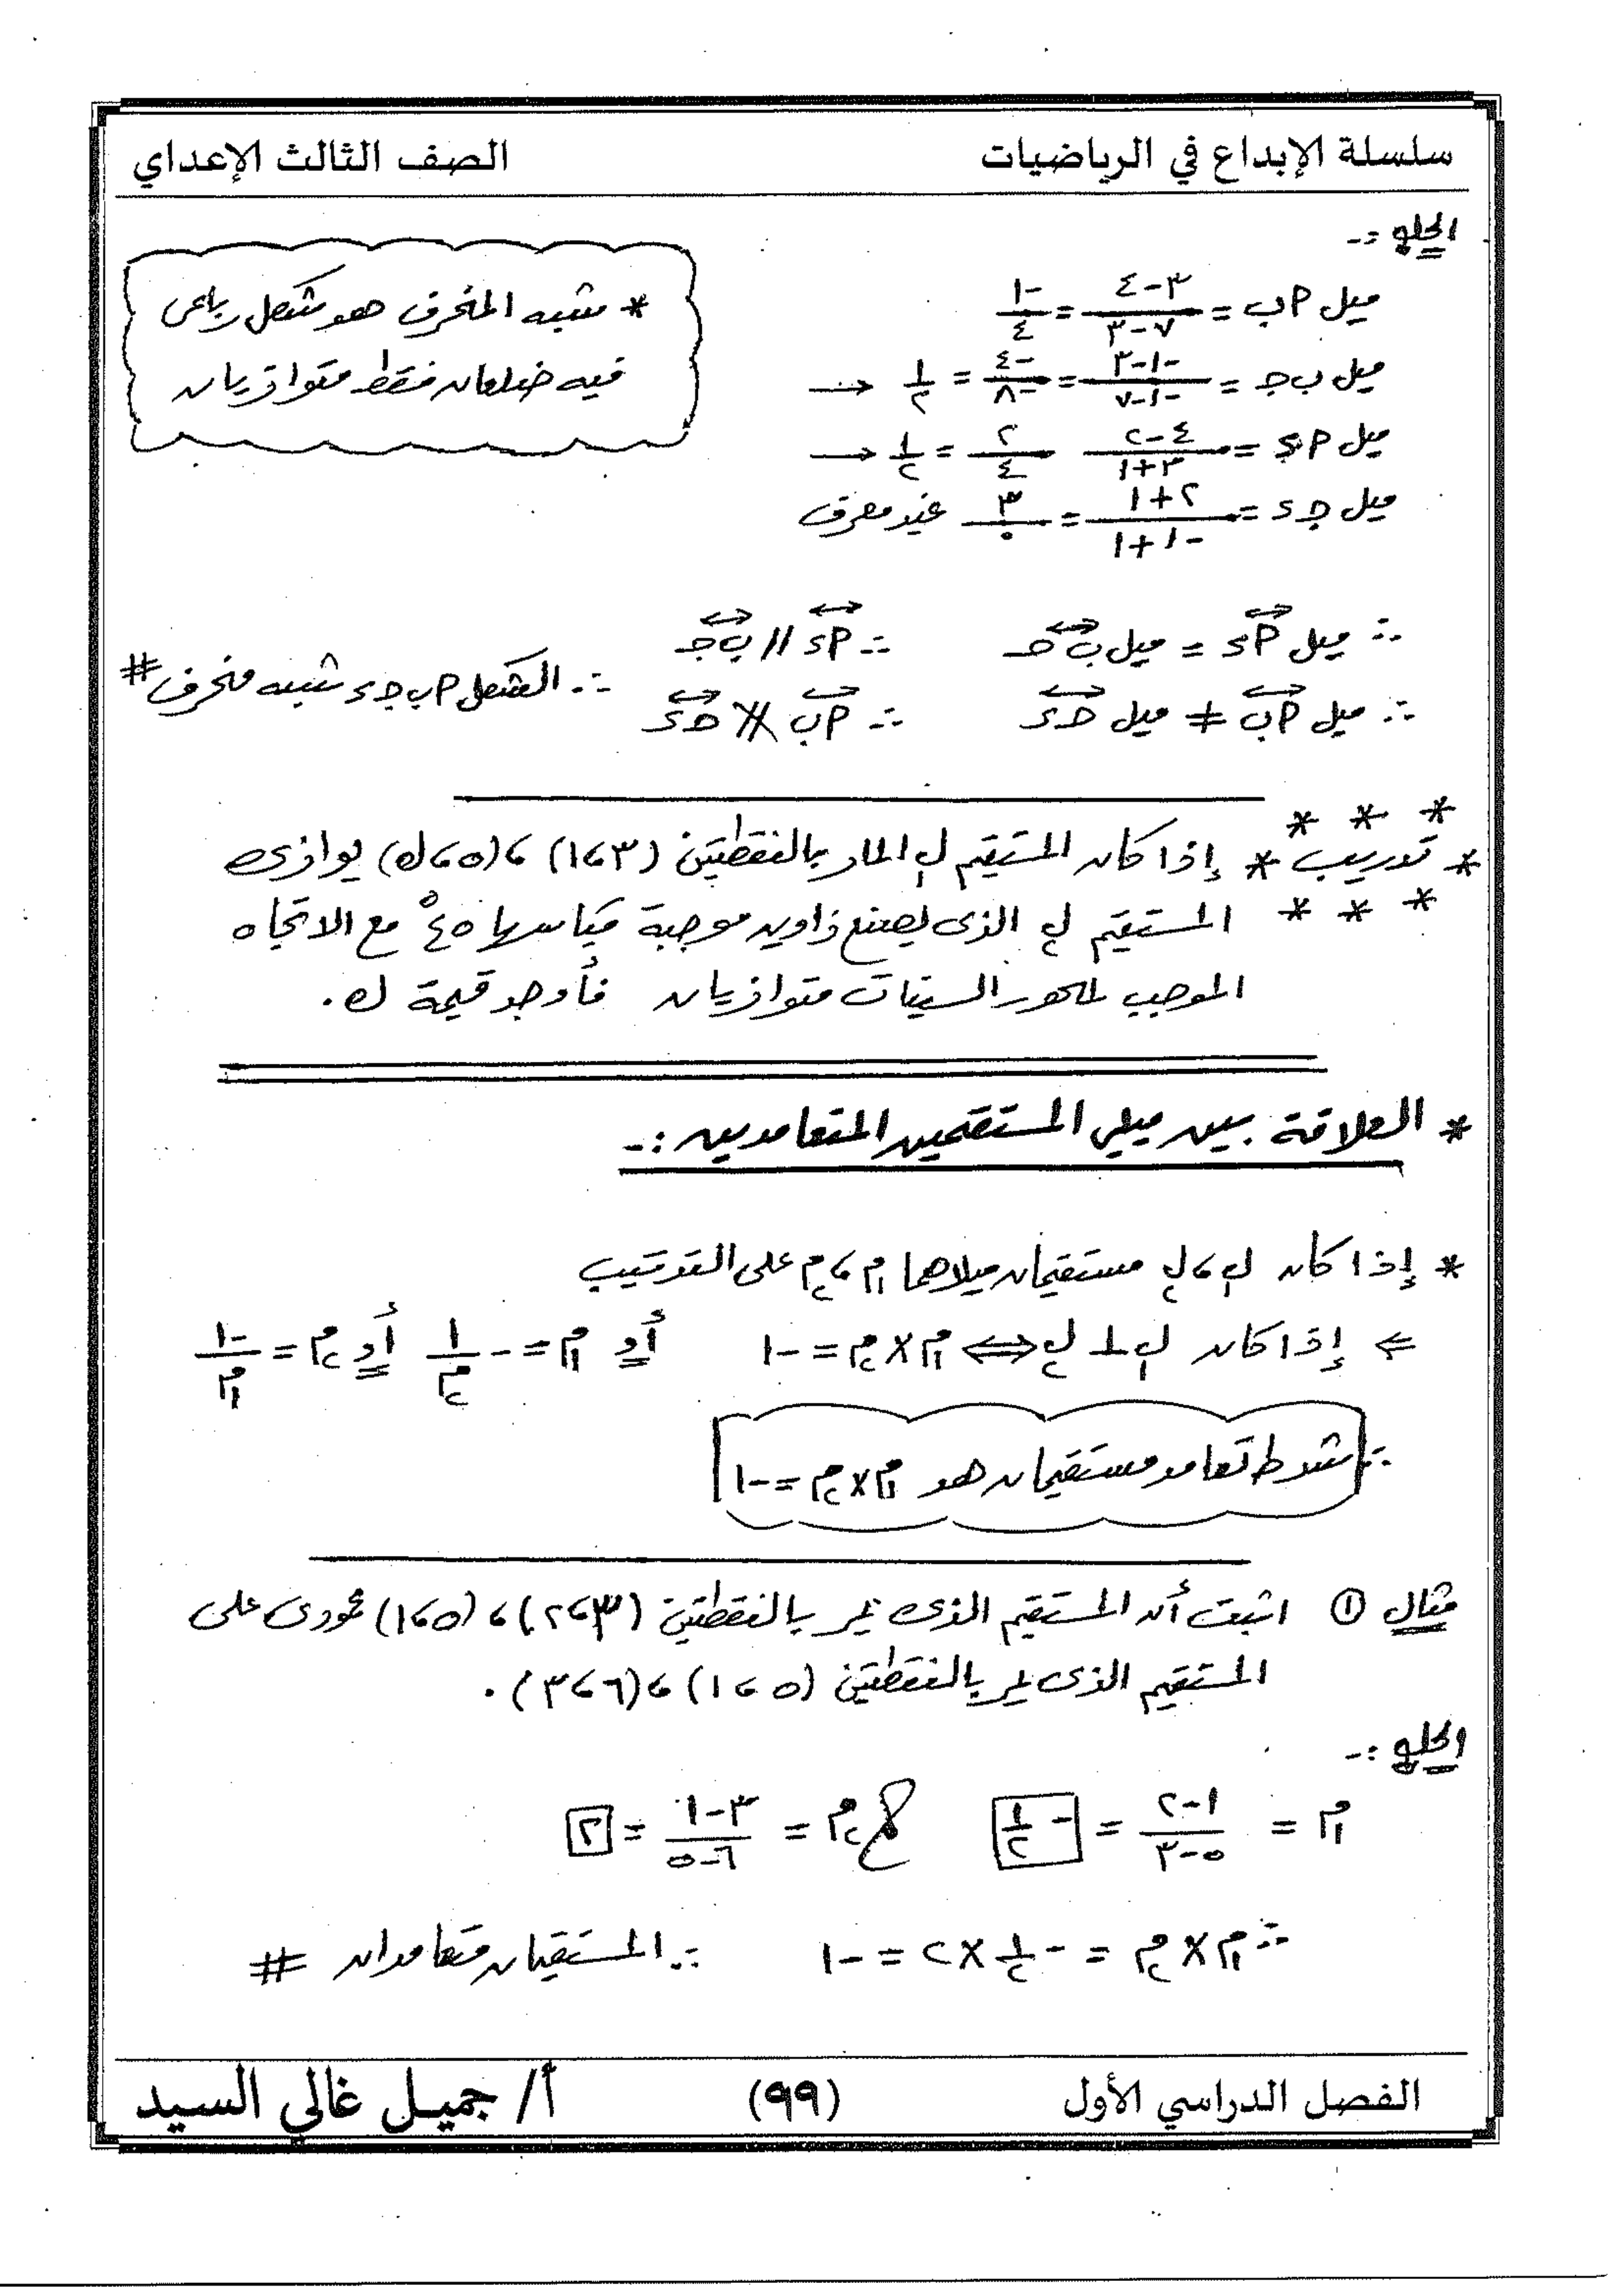 سلسلة الإبداع في الرياضيات الصف الثالث الإعداي
الحل :-
ميل أب = (٣-٤)/(٧-٣) = -١/٤
ميل ب ج = (-١-٣)/(-١-٧) = -٤/-٨ = ١/٢ ←
ميل أ د = (٤-٢)/(٣+١) = ٢/٤ = ١/٢ ←
ميل ج د = (٢+١)/(-١+١) = ٣/٠ غير معرف
* شبه المنحرف هو شكل رباعى
فيه ضلعان فقط متوازيان
∵ ميل أد = ميل ب ج ∴ أد // ب ج
∵ ميل أب ≠ ميل ج د ∴ أب ∦ ج د
∴ الشكل أ ب ج د شبه منحرف #
* تدريب * إذا كان المستقيم ل١ المار بالنقطتين (٣، ١) ، (٥، ك) يوازى
المستقيم ل٢ الذى يصنع زاوية موجبة قياسها ٤٥° مع الاتجاه
الموجب لمحور السينات متوازيان فأوجد قيمة ك.
* العلاقة بين ميلى المستقمين المتعامدين :-
* إذا كان ل١ ، ل٢ مستقيمان ميلاهما م١ ، م٢ على الترتيب
⇐ إذا كان ل١ ⊥ ل٢ ⟺ م١ × م٢ = -١ أو م١ = -١/م٢ أو م٢ = -١/م١
∴ شرط تعامد مستقيمان هو م١ × م٢ = -١
مثال ① اثبت أن المستقيم الذى يمر بالنقطتين (٣، ٢) ، (٥، ١) عمودى على
المستقيم الذى يمر بالنقطتين (٥، ١) ، (٦، ٣) .
الحل :-
م١ = (١-٢)/(٥-٣) = -١/٢ ، م٢ = (٣-١)/(٦-٥) = ٢
∵ م١ × م٢ = -١/٢ × ٢ = -١ ∴ المستقيمان متعامدان #
الفصل الدراسي الأول (٩٩) أ/ جميل غالي السيد